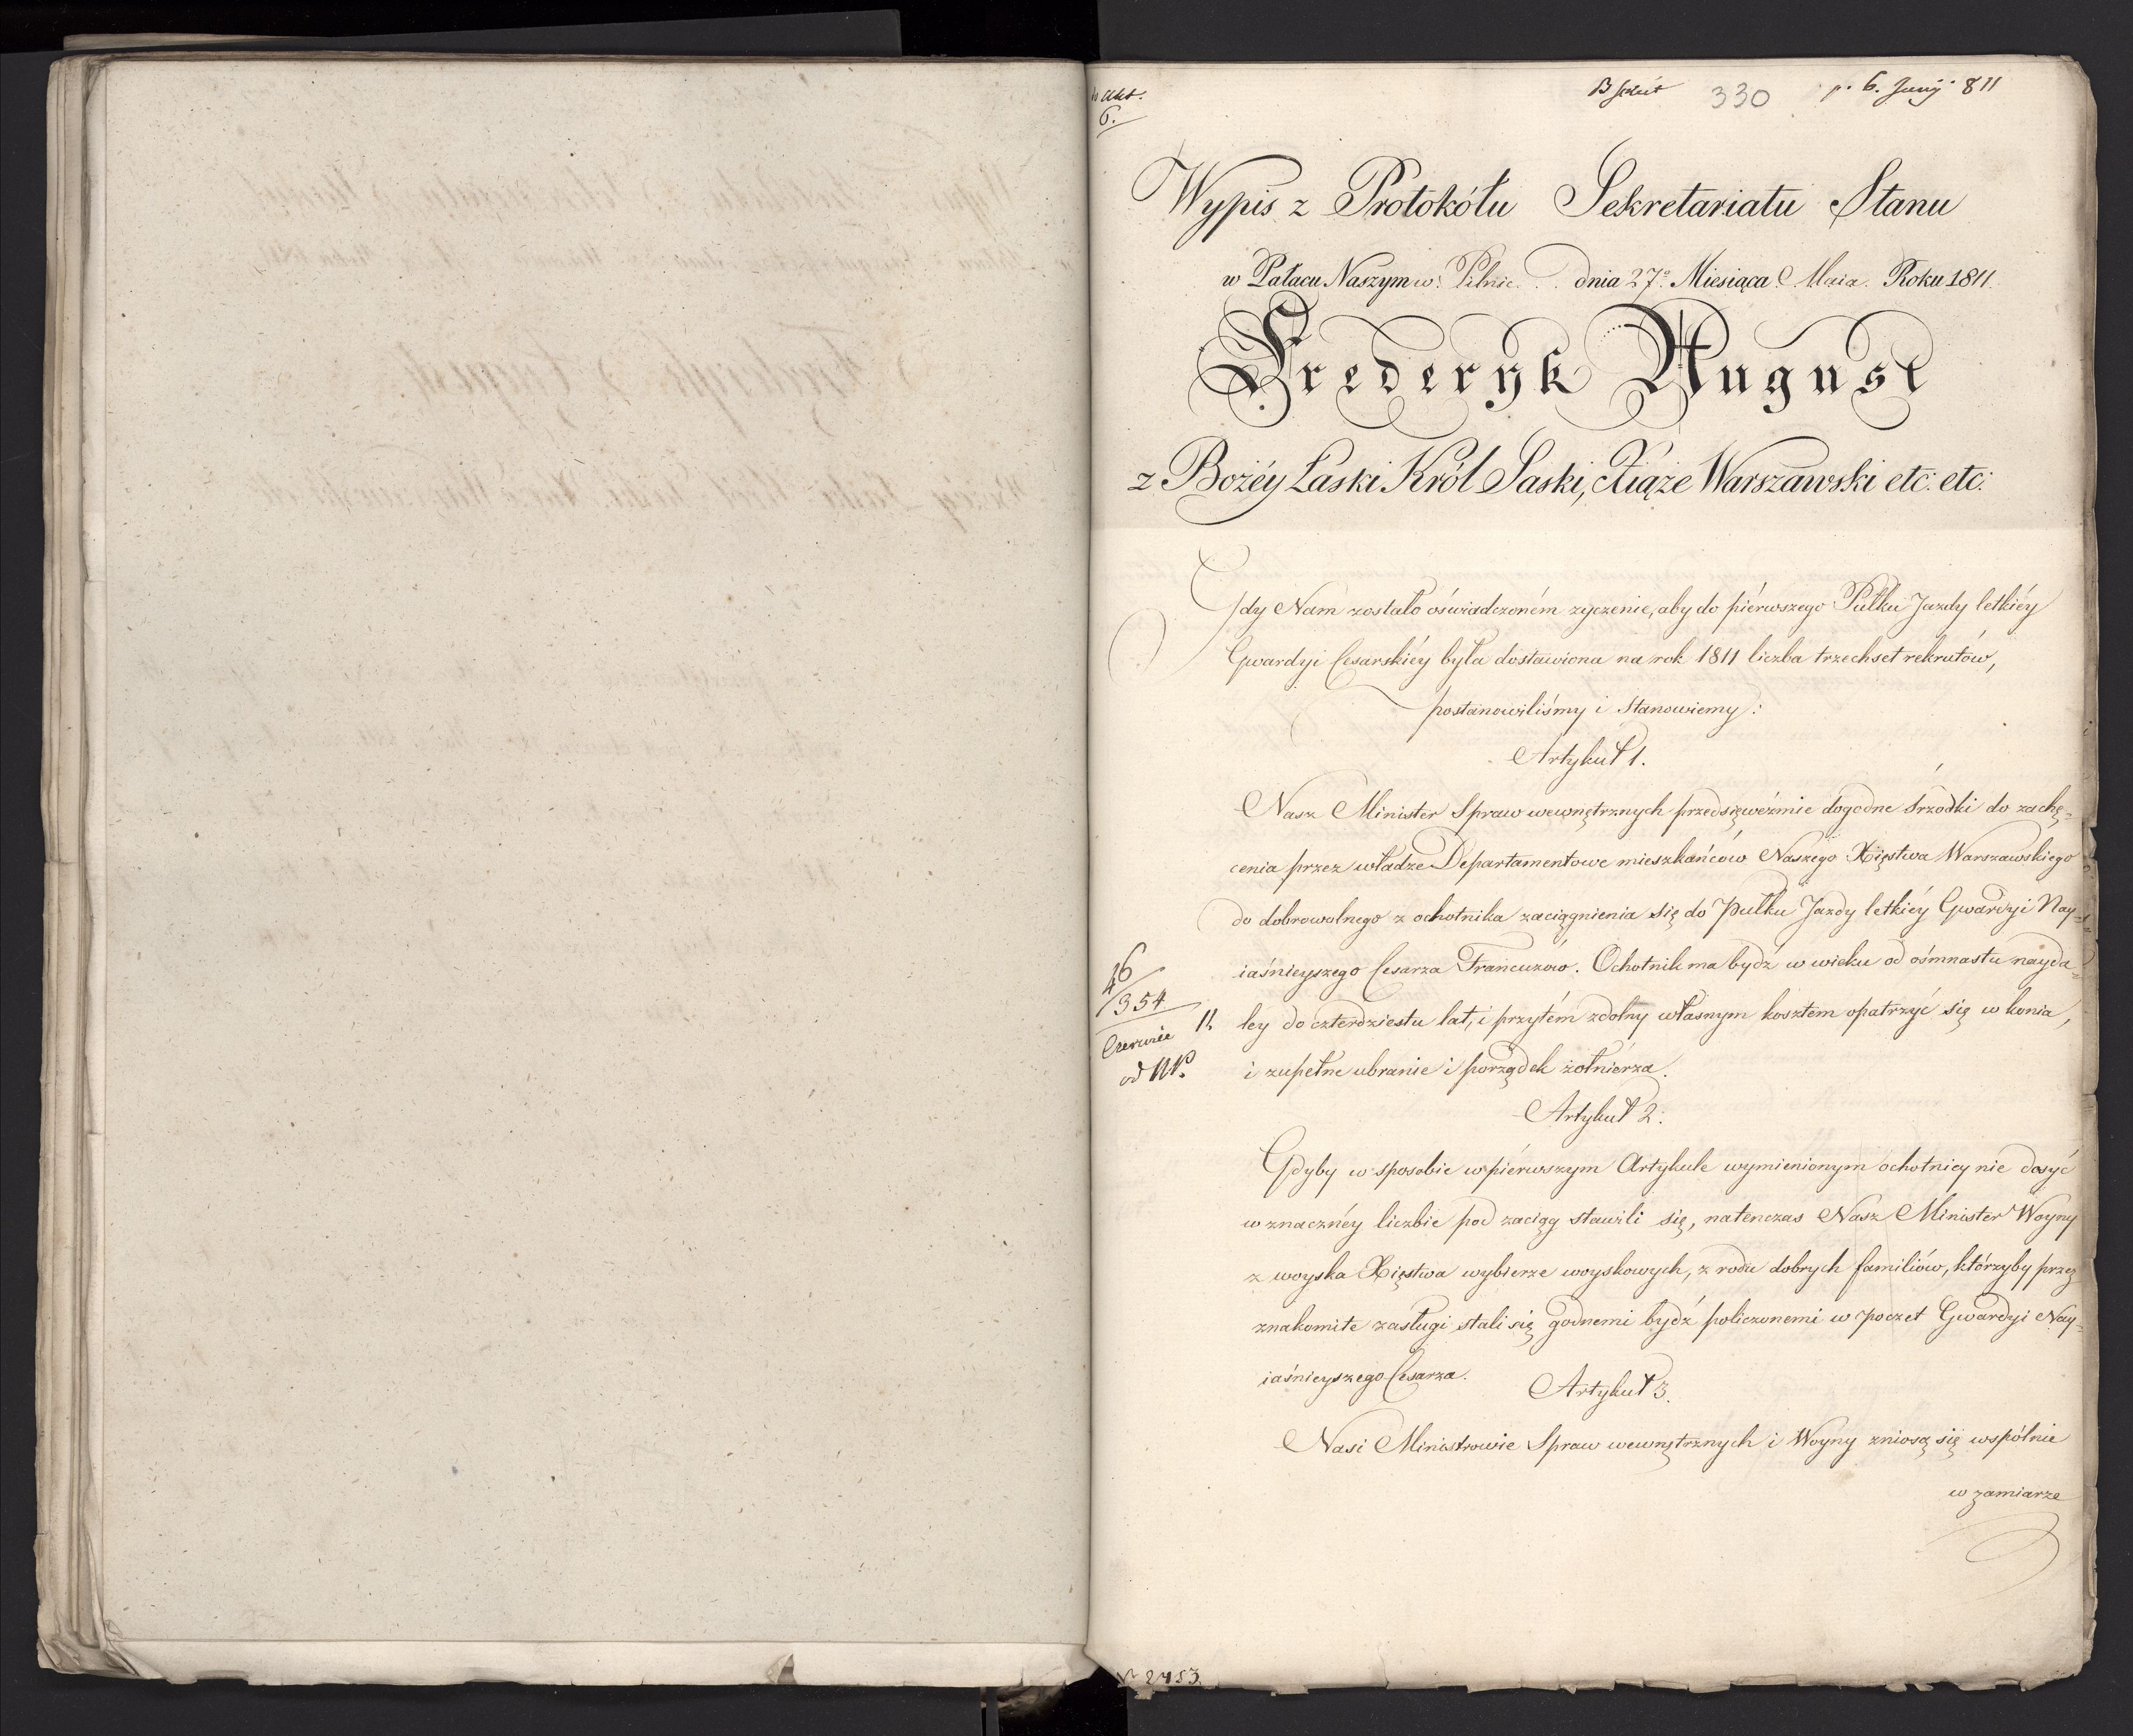 akt.
6.
330
p. 6. Junij 811
Wypis z Protokółu Sekretariatu Stanu
w Pałacu Naszym w Pilnic. dnia 27º Miesiąca Maia. Roku 1811.
Frederyk August
z Bożéy Łaski Król Saski, Xiąże Warszawski etc: etc:
Gdy Nam zostało oświadczoném zyczenie, aby do piérwszego Pułku Jazdy letkiéy
Gwardyi Cesarskiéy była dostawiona na rok 1811 liczba trzechset rekrutów,
postanowiliśmy i Stanowiemy:
Artykuł 1.
Nasz Minister Spraw wewnętrznych przedsięweźmie dogodne śrzodki do zachę=
cenia przez władze Departamentowe mieszkańców Naszego Xięstwa Warszawskiego
do dobrowolnego z ochotnika zaciągnienia się do Pułku Jazdy letkiéy Gwardyi Nay=
iaśnieyszego Cesarza Francuzów. Ochotnik ma bydź w wieku od ośmnastu nayda=
ley do czterdziestu lat, i przytém zdolny własnym kosztem opatrzyć się w konia,
i zupełne ubranie i porządek żołniérza.
46
354
Czerwiec 11
od NP.
Artykuł 2.
Gdyby w sposobie w piérwszym Artykule wymienionym ochotnicy nie dosyć
w znacznéy liczbie pod zaciąg stawili się, natenczas Nasz Minister Woyny
z woyska Xięstwa wybierze woyskowych, z rodu dobrych familiów, którzyby przez
znakomite zasługi stali się godnemi bydź policzonemi w poczet Gwardyi Nay=
iaśnieyszego Cesarza.
Artykuł 3.
Nasi Ministrowie Spraw wewnętrznych i Woyny zniosą się wspólnie
w zamiarze
N 2453